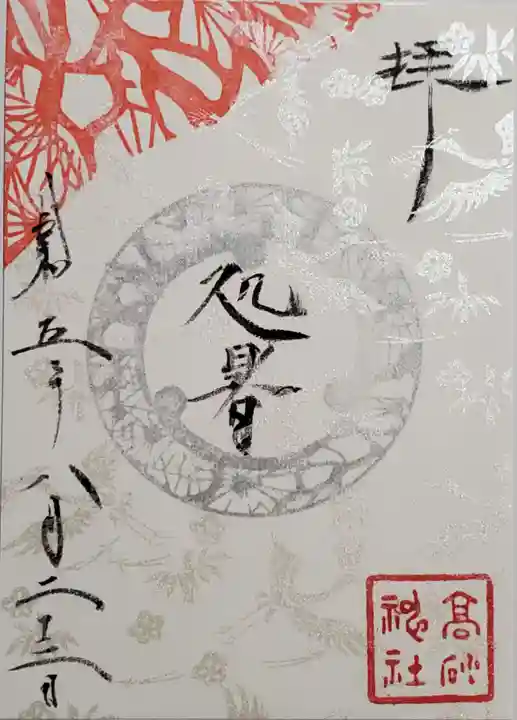 拝
処暑
五年八月二十三日
髙砂
神社